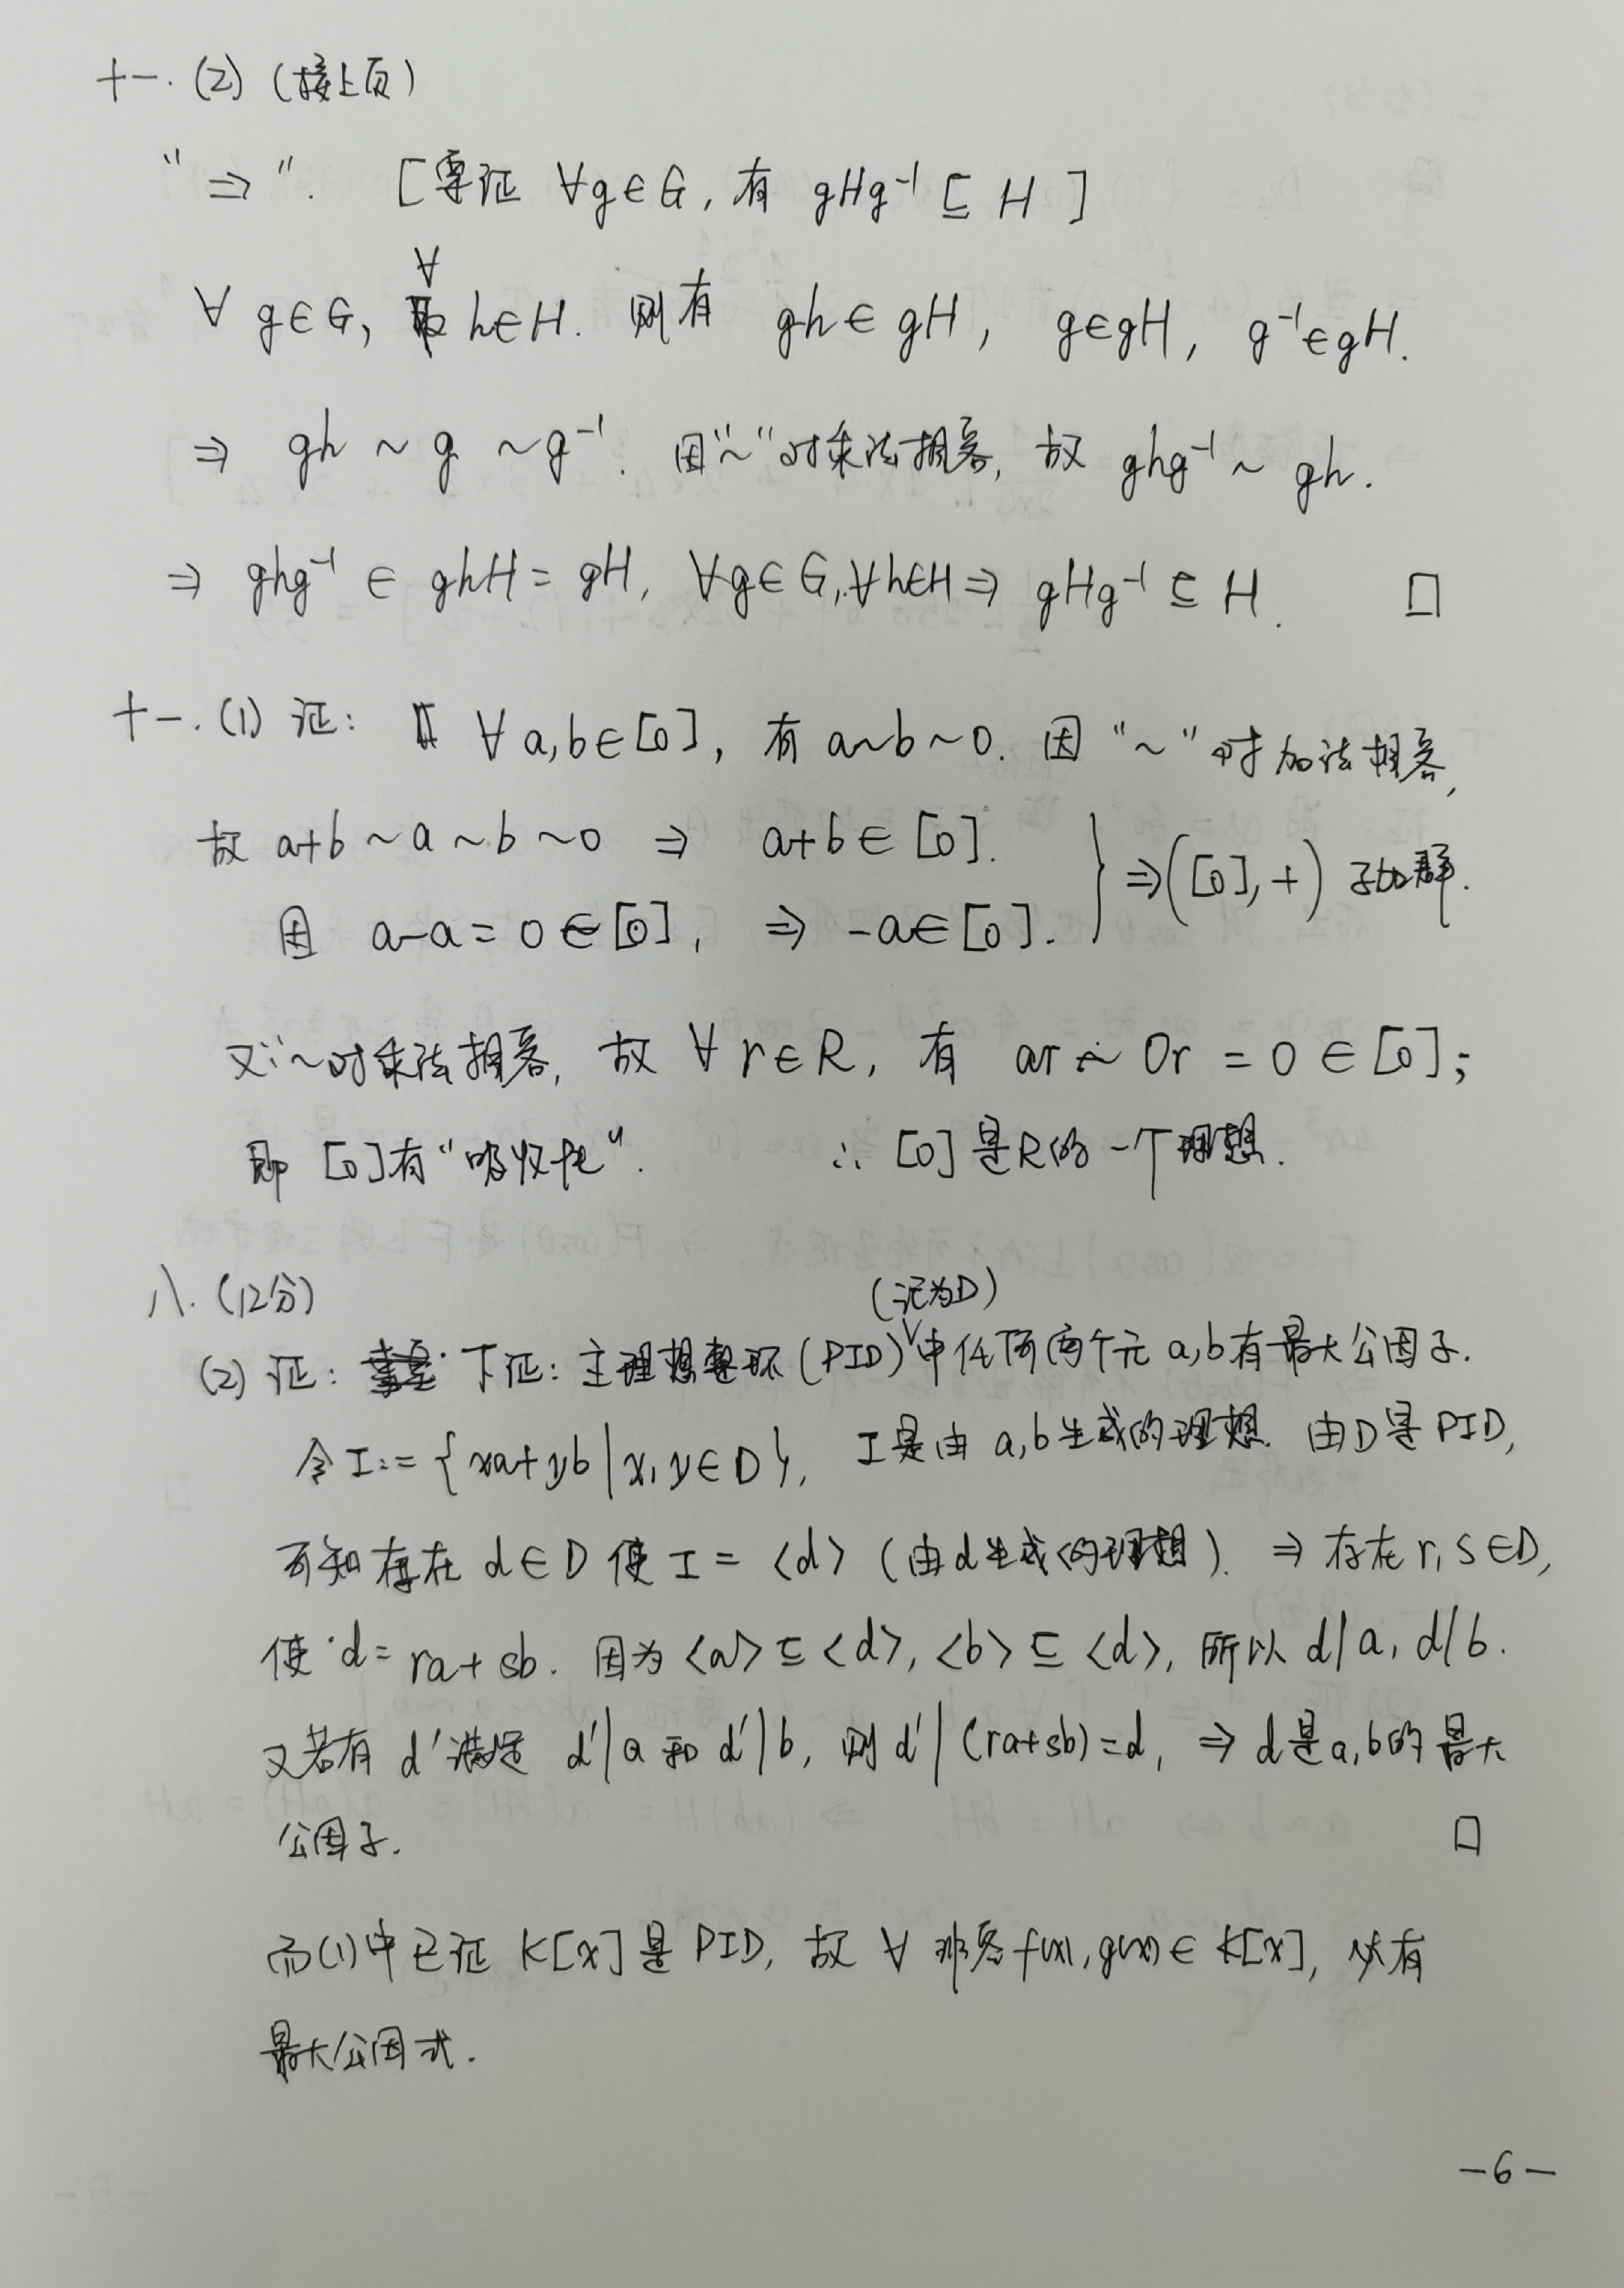 十一.(2) (接上页)
"⇒". [要证 ∀g∈G, 有 gHg⁻¹ ⊆ H ]
∀ g∈G, ∀ h∈H. 则有 gh ∈ gH, g∈gH, g⁻¹∈gH.
⇒ gh ~ g ~ g⁻¹. 因"~"对乘法相容, 故 ghg⁻¹ ~ gh.
⇒ ghg⁻¹ ∈ ghH = gH, ∀g∈G,∀h∈H ⇒ gHg⁻¹ ⊆ H. □
十一.(1) 证: ∀ a,b∈[0], 有 a~b~0. 因 "~" 对加法相容,
故 a+b ~ a ~ b ~ 0 ⇒ a+b ∈ [0].
因 a-a = 0 ∈ [0], ⇒ -a∈[0]. } ⇒ ([0], +) 子加群.
又"~对乘法相容, 故 ∀ r∈R, 有 ar ~ 0r = 0 ∈ [0];
即 [0]有"吸收性". ∴ [0] 是R的一个理想.
八. (12分)
(2) 证: 下证: 主理想整环 (PID) (记为D) 中任何两个元 a,b有最大公因子.
令 I:= {xa+yb | x,y∈D}, I是由 a,b生成的理想. 由D是PID,
可知存在 d∈D 使 I = <d> (由d生成的理想). ⇒ 存在 r,s∈D,
使 d= ra+sb. 因为 <a> ⊆ <d>, <b> ⊆ <d>, 所以 d|a, d|b.
又若有 d' 满足 d'|a 和 d'|b, 则 d' | (ra+sb)=d, ⇒ d是a,b的最大
公因子. □
而(1)中已证 K[x] 是 PID, 故 ∀ 非零 f(x), g(x) ∈ K[x], 必有
最大公因式.
-6-